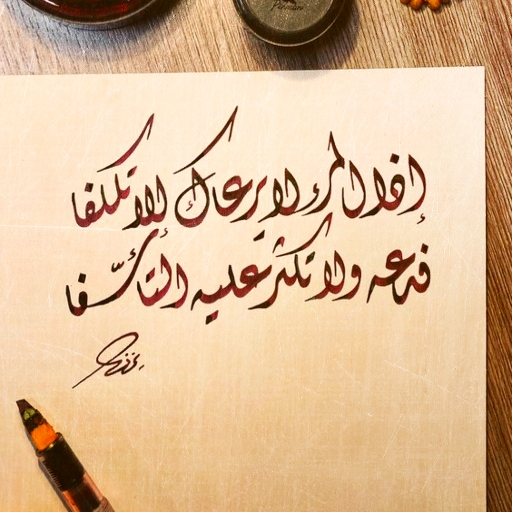 إذا المرء لا يرعاك إلا تكلفا
فدعه ولا تكثر عليه التأسّفا